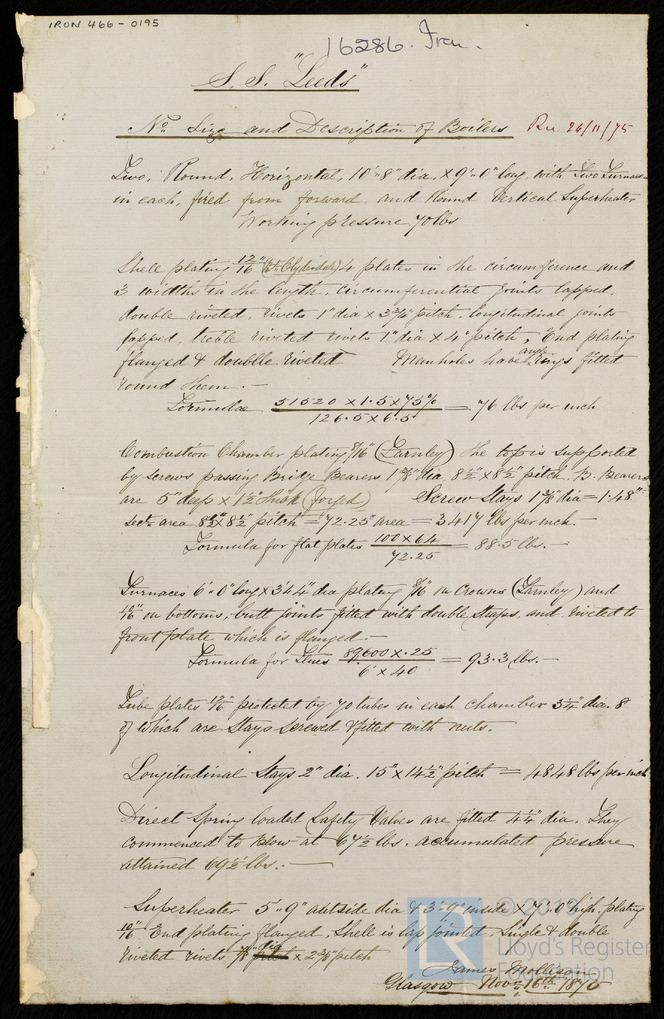 IRON 466-0195
16286. Iron.
S.S. "Leeds"
No. Size and Description of Boilers Rec 26/11/75
Two, Round, Horizontal, 10'-8" dia, × 9'-0" long, with Two Furnaces
in each, fired from forward and Round Vertical Superheater
Working pressure 70 lbs
Shell plating 12/16" 4 plates in the circumference and
3 widths in the length, circumferential joints lapped,
double riveted, rivets 1" dia × 3 pitch, longitudinal joints
lapped, treble riveted rivets 1" dia × 4" pitch, End plating
flanged & double riveted Manholes have angle rings fitted
round them. —
Formula 51520 × 1.5 × 75% / 126.5 × 6.5 = 76 lbs per inch
Combustion Chamber plating 8/16" (Farnley) the top is supported
by screws passing Bridge Bearers dia, 8½" × 8½" pitch, B. Bearers
are 5" deep × 1½" thick (forged) Screw Stays dia = 1.48"
sect. area 8½" × 8½" pitch = 72.25" area = 3417 lbs per inch. —
Formula for flat plates 100 × 64 / 72.25 = 88.5 lbs. —
Furnaces 6'-0" long × 3'4" dia plating on Crowns (Farnley) and
on bottoms, butt joints fitted with double straps, and riveted to
front plate which is flanged. —
Formula for Flues 89600 × .25 / 6 × 40 = 93.3 lbs. —
Tube plates 12/16" protected by 70 tubes in each chamber 3¼" dia. 8
of which are Stays screwed & fitted with nuts.
Longitudinal Stays 2" dia. 15" × 14½" pitch = 4848 lbs per inch
Direct Spring loaded Safety Valves are fitted 4¼" dia. They
commenced to blow at 67½ lbs. accumulated pressure
attained 69½ lbs. —
Superheater 5'-9" outside dia & 3'-9" inside × 7'-0" high, plating
10/16" End plating flanged, Shell is lap jointed, Single & double
riveted rivets dia × pitch
James Mollison
Glasgow Nov. 16th 1875
LR
Lloyd's Register
Foundation